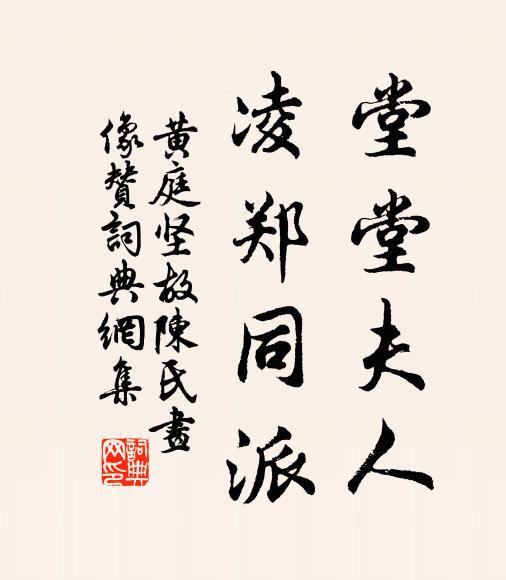 堂堂夫人
凌郑同派
黄庭坚故陳氏畫
像賛詞典網集
詞典
网印